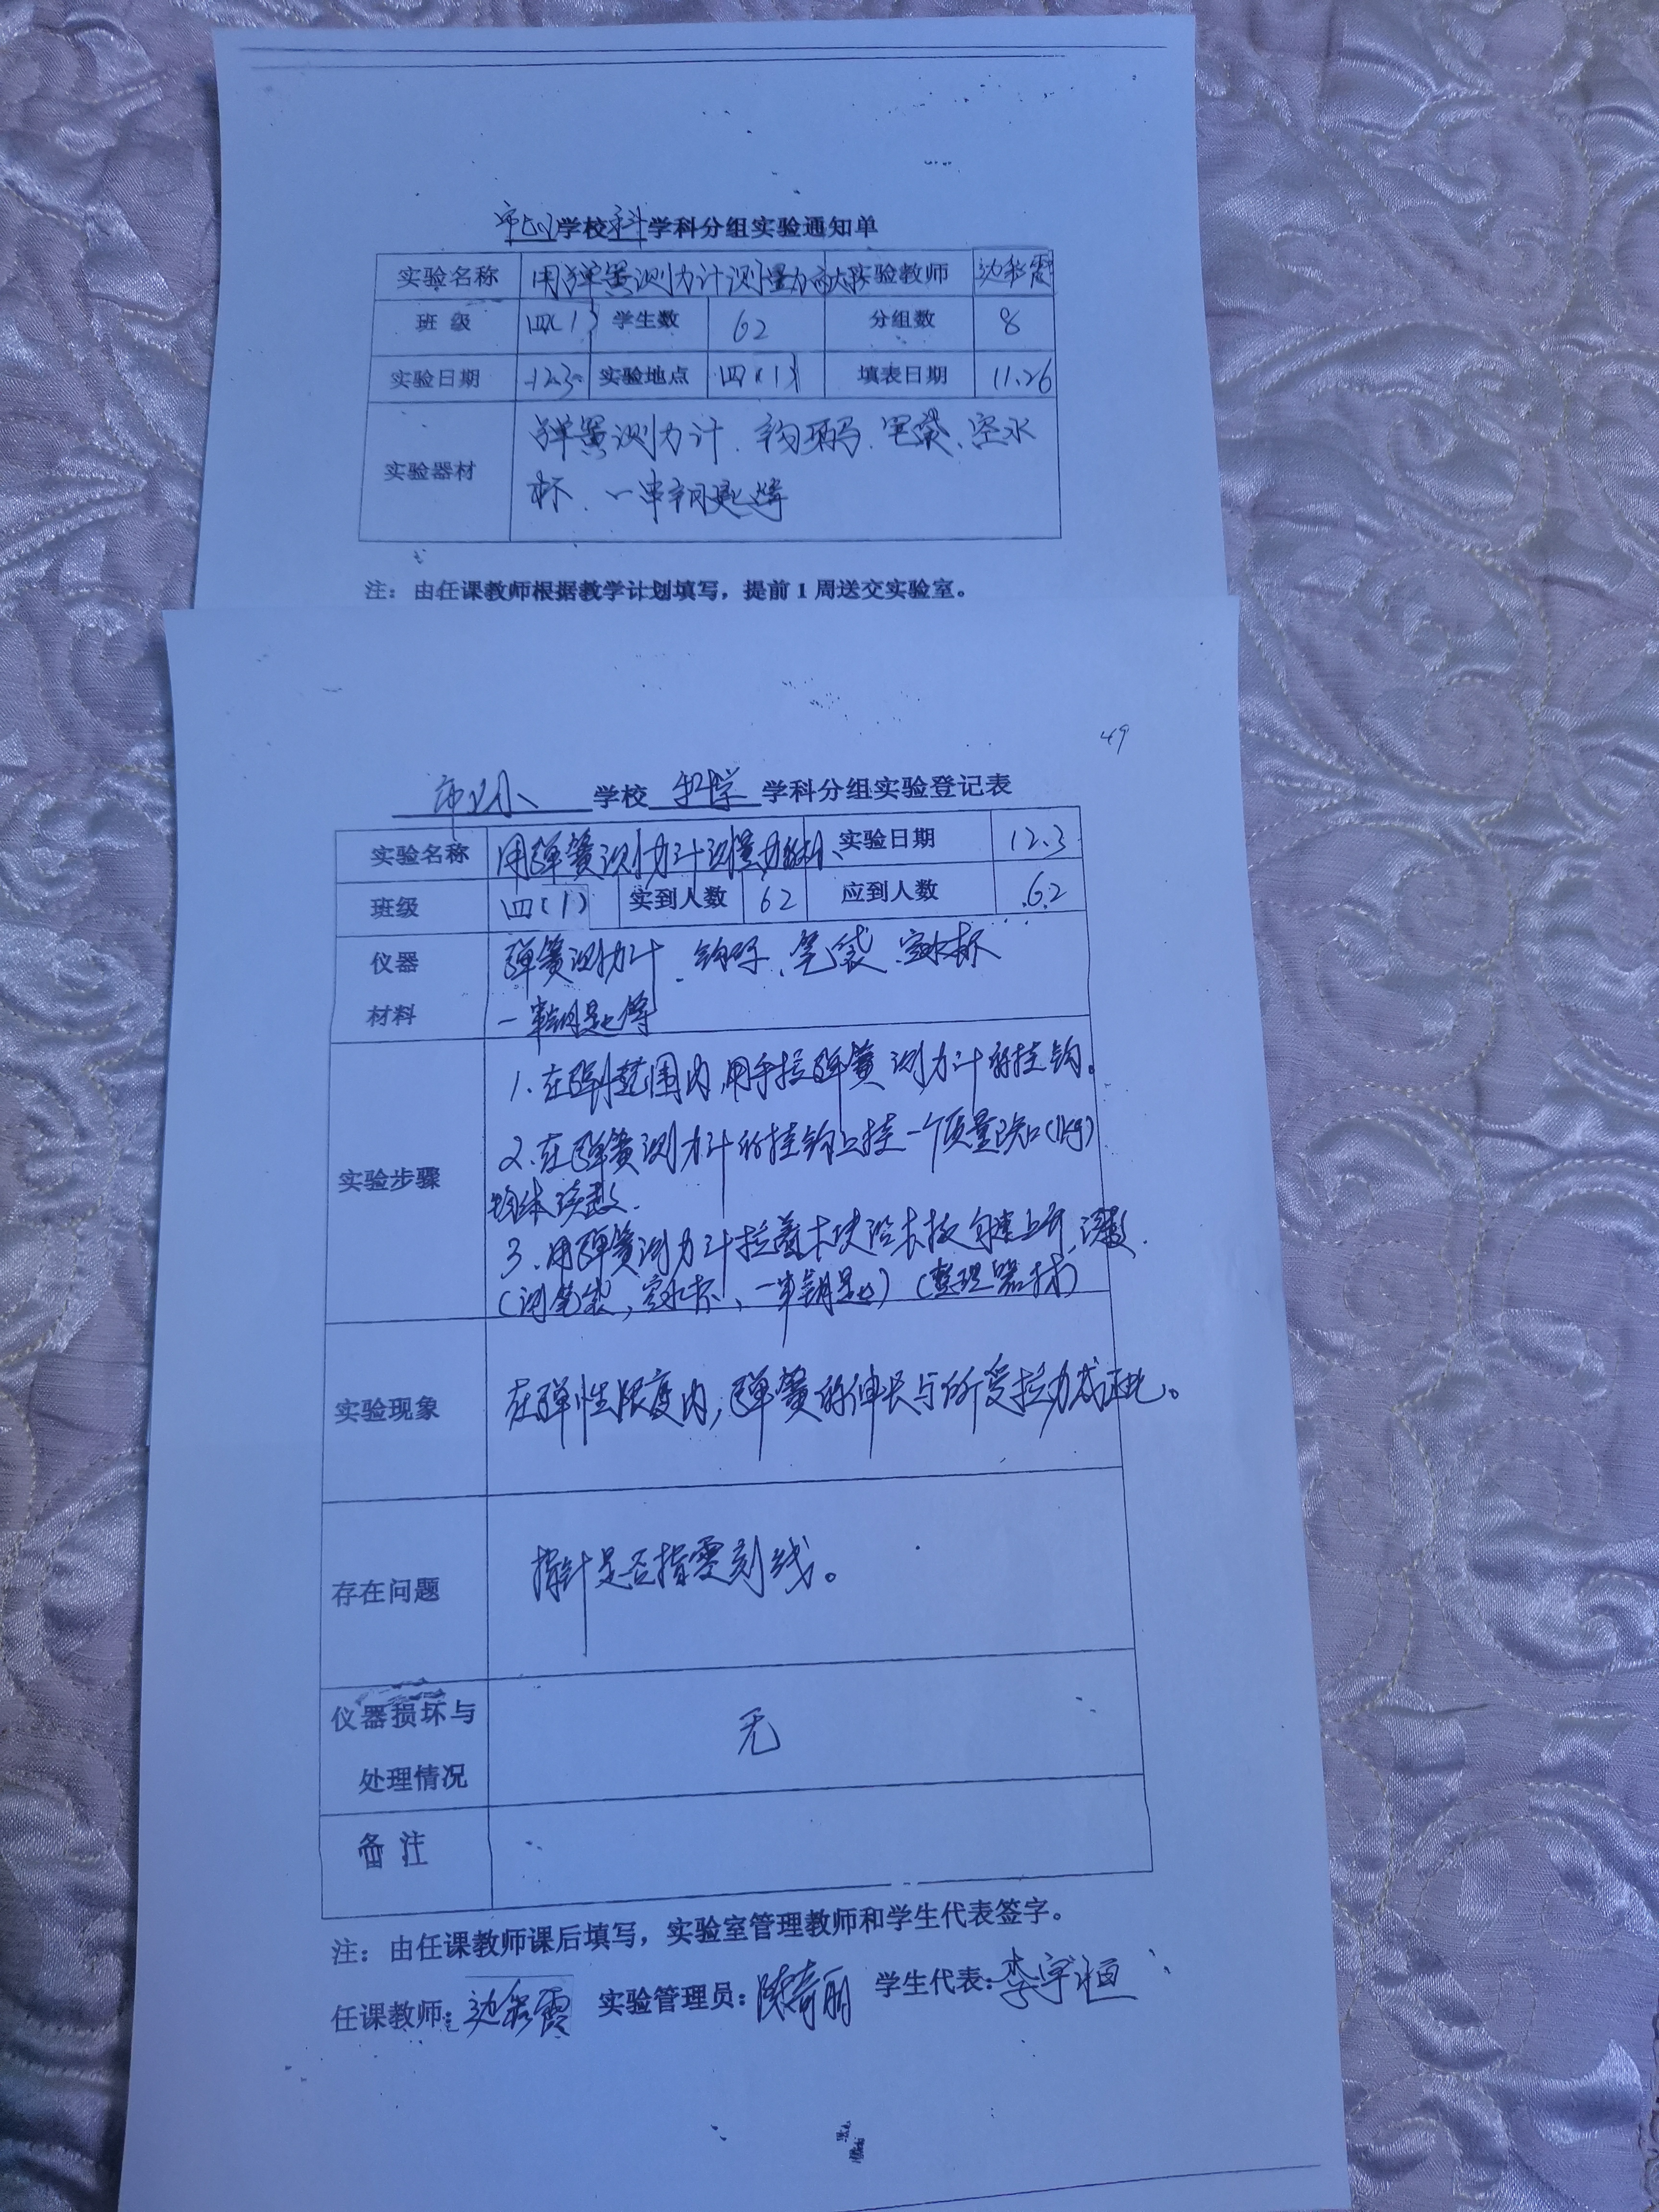 学校 科 学科分组实验通知单
实验名称 用弹簧测力计测量力的大小 实验教师 边彩霞
班 级 四(1) 学生数 62 分组数 8
实验日期 12.3 实验地点 四(1) 填表日期 11.26
实验器材 弹簧测力计、钩码、笔袋、空水
杯、一串钥匙等
注：由任课教师根据教学计划填写，提前 1 周送交实验室。
49
学校 科学 学科分组实验登记表
实验名称 用弹簧测力计测量力的大小 实验日期 12.3
班级 四(1) 实到人数 62 应到人数 62
仪器 弹簧测力计、钩码、笔袋、空水杯
材料 一串钥匙等
1. 在弹性范围内,用手拉弹簧测力计的挂钩。
2. 在弹簧测力计的挂钩上挂一个质量已知(1kg)
实验步骤
物体读数.
3. 用弹簧测力计拉着木块沿木板匀速上升,读数.
(测笔袋,空水杯、一串钥匙)(整理器材)
实验现象 在弹性限度内,弹簧的伸长与所受拉力成正比。
存在问题 指针是否指零刻线。
仪器损坏与
处理情况 无
备 注
注：由任课教师课后填写，实验室管理教师和学生代表签字。
任课教师：边彩霞 实验管理员： 学生代表：李宇恒